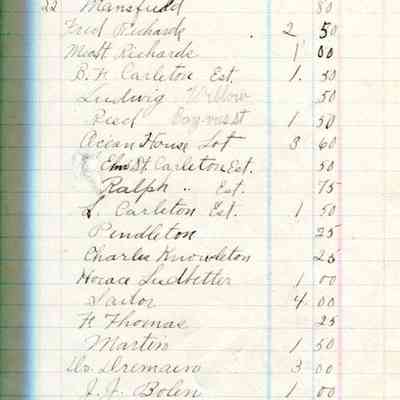 22 Mansfield 80
Fred Richards 2 50
Mrs Richards 1 00
B. F. Carleton Est. 1. 50
Ludwig Willow 50
Reed 1 50
Ocean House Lot 3 60
Elm St. Carleton Est. 50
Ralph " Est. 75
L. Carleton Est. 1 50
Pendleton 25
Charles Knowleton 25
Horace Ludbetter 1 00
Tailor 4 00
F. Thomas 25
Martin 1 50
Dr. 3 00
J. J. Bolen 1 00